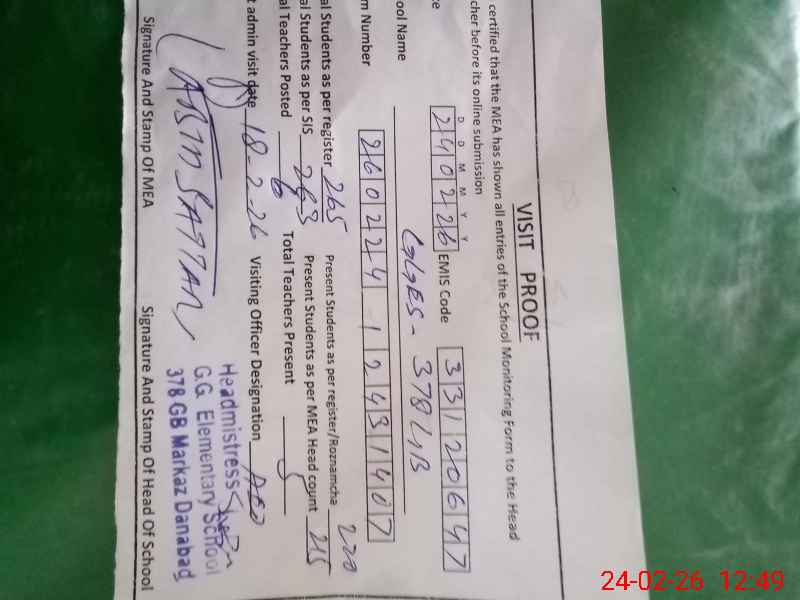 VISIT PROOF
certified that the MEA has shown all entries of the School Monitoring Form to the Head
cher before its online submission
D D M M Y Y
te 240226 EMIS Code 33120647
ool Name GGES - 378 GB
m Number 260224 - 1243/407
al Students as per register 265 Present Students as per register/Roznamcha 220
al Students as per SIS 263 Present Students as per MEA Head count 215
al Teachers Posted 6 Total Teachers Present 5
t admin visit date 18-2-26 Visiting Officer Designation AEO
Headmistress
G.G. Elementary School
378 GB Markaz Danabad
Signature And Stamp Of MEA Signature And Stamp Of Head Of School
24-02-26 12:49